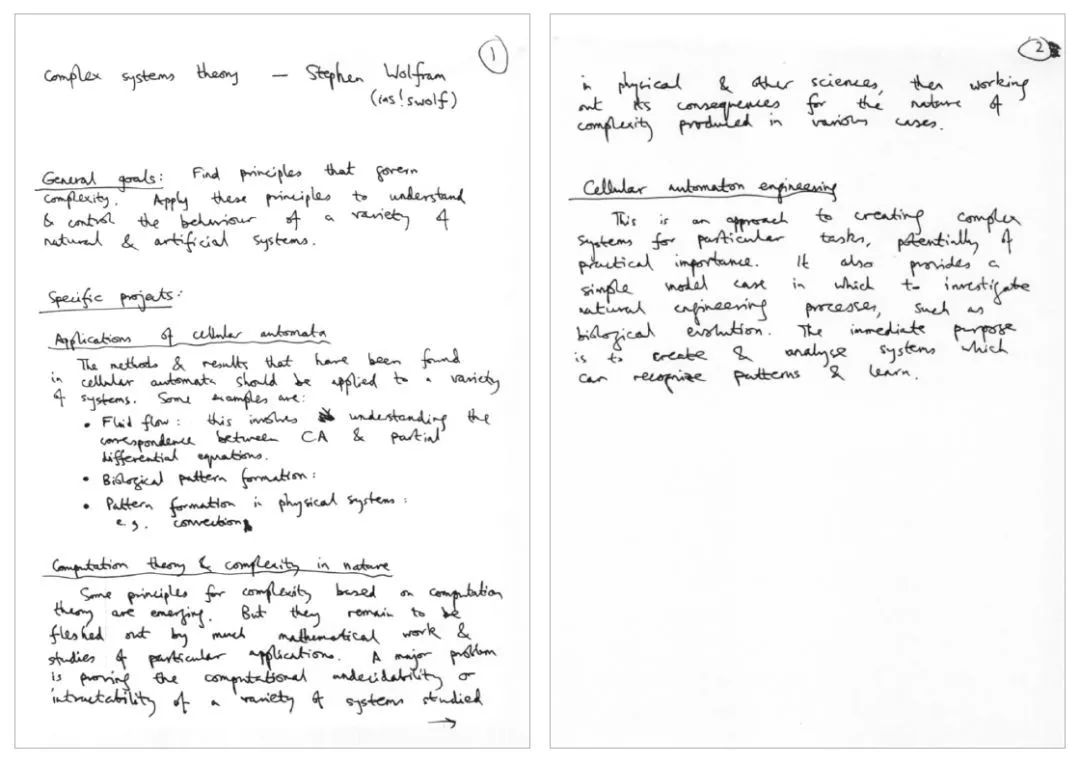 1
Complex systems theory — Stephen Wolfram
(ias!swolf)
General goals: Find principles that govern
complexity. Apply these principles to understand
& control the behaviour of a variety of
natural & artificial systems.
Specific projects:
Applications of cellular automata
The methods & results that have been found
in cellular automata should be applied to a variety
of systems. Some examples are:
• Fluid flow: this involves understanding the
correspondence between CA & partial
differential equations.
• Biological pattern formation:
• Pattern formation in physical systems:
e.g. convection
Computation theory & complexity in nature
Some principles for complexity based on computation
theory are emerging. But they remain to be
fleshed out by much mathematical work &
studies of particular applications. A major problem
is proving the computational undecidability or
intractability of a variety of systems studied
→
2
in physical & other sciences, then working
out its consequences for the nature of
complexity produced in various cases.
Cellular automaton engineering
This is an approach to creating complex
systems for particular tasks, potentially of
practical importance. It also provides a
simple model case in which to investigate
natural engineering processes, such as
biological evolution. The immediate purpose
is to create & analyse systems which
can recognize patterns & learn.